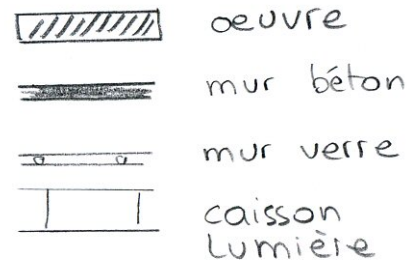 oeuvre
mur béton
mur verre
caisson
lumière